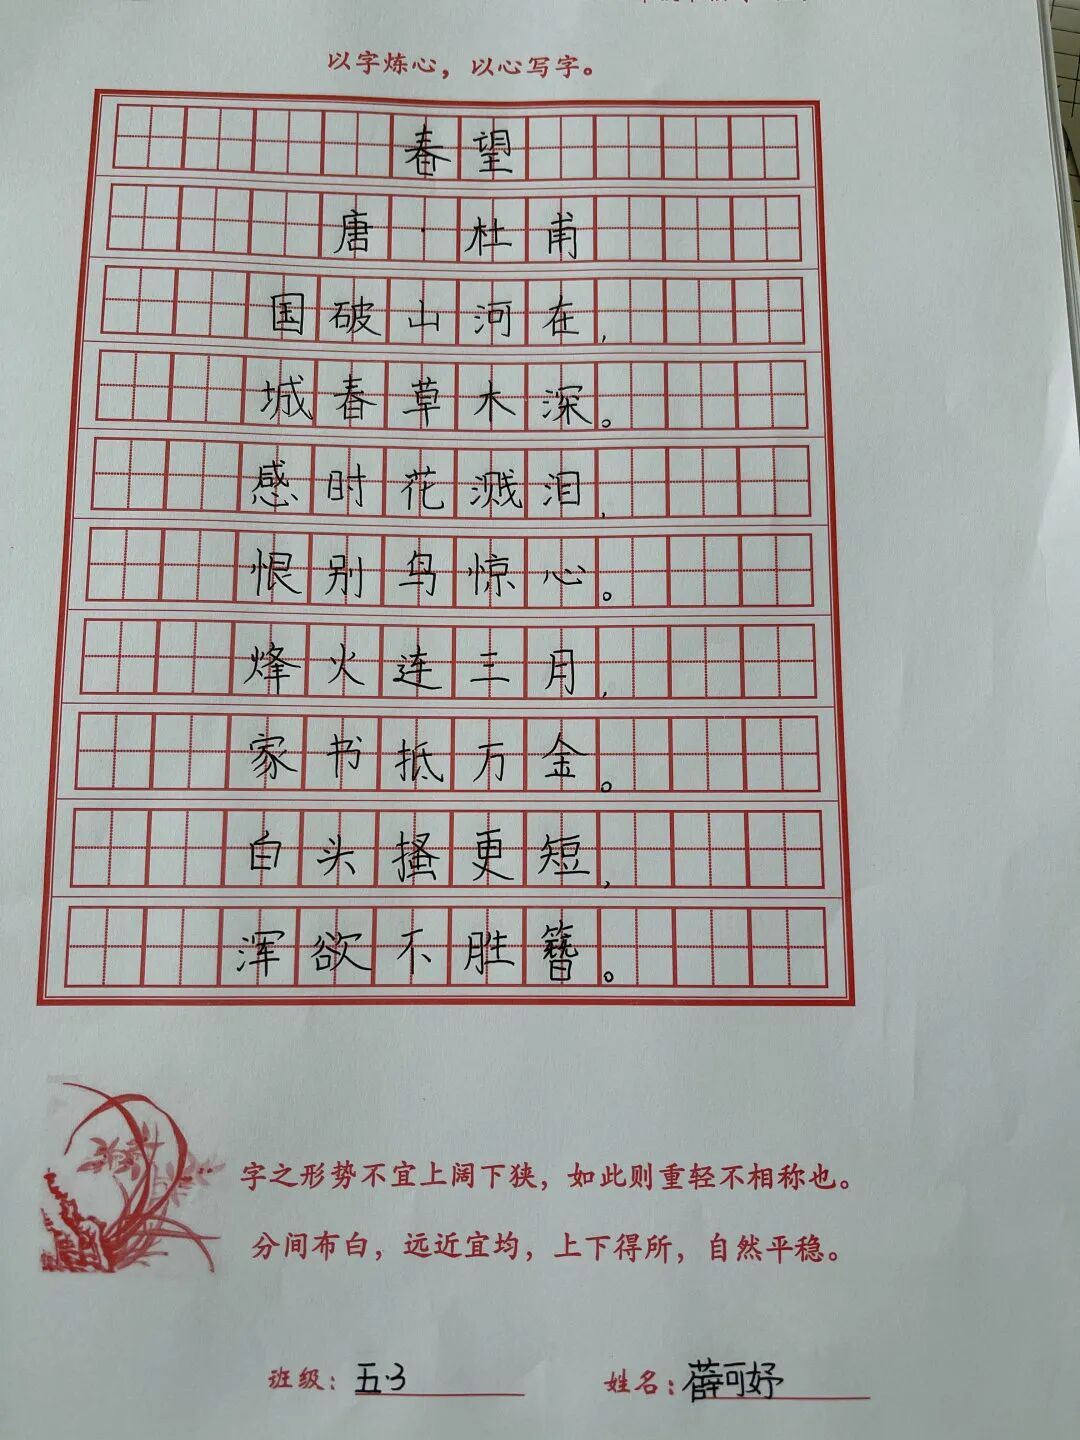 以字炼心，以心写字。
春望
唐·杜甫
国破山河在，
城春草木深。
感时花溅泪，
恨别鸟惊心。
烽火连三月，
家书抵万金。
白头搔更短，
浑欲不胜簪。
字之形势不宜上阔下狭，如此则重轻不相称也。
分间布白，远近宜均，上下得所，自然平稳。
班级：五·3 姓名：薛可妤